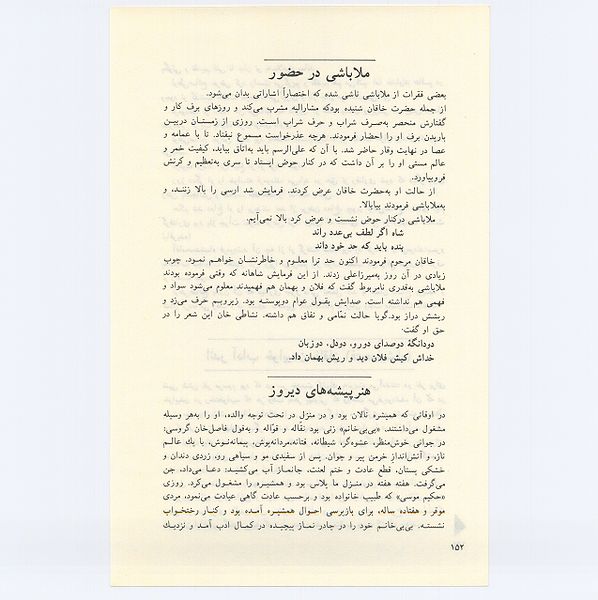 ملاباشی در حضور
بعضی فقرات از ملاباشی ناشی شده که اختصاراً اشاراتی بدان می‌شود.
از جمله حضرت خاقان شنیده بودکه مشارالیه مشرب می‌کند و روزهای برف کار و
گفتارش منحصر به‌صرف شراب و حرف شراب است. روزی از زمستان دربین
باریدن برف او را احضار فرمودند. هرچه عذرخواست مسموع نیفتاد. تا با عمامه و
عصا در نهایت وقار حاضر شد. با آن که علی‌الرسم باید به‌اتاق بیاید، کیفیت خمر و
عالم مستی او را بر آن داشت که در کنار حوض ایستاد تا سری به‌تعظیم و کرنش
فروبیاورد.
از حالت او به‌حضرت خاقان عرض کردند. فرمایش شد ارسی را بالا زنند، و
به‌ملاباشی فرمودند بیابالا.
ملاباشی درکنار حوض نشست و عرض کرد بالا نمی‌آیم.
شاه اگر لطف بی‌عدد راند
بنده باید که حد خود داند
خاقان مرحوم فرمودند اکنون حد ترا معلوم و خاطرنشان خواهم نمود. چوب
زیادی در آن روز به‌میرزاعلی زدند. از این فرمایش شاهانه که وقتی فرموده بودند
ملاباشی به‌قدری نامربوط گفت که فلان و بهمان هم فهمیدند معلوم می‌شود سواد و
فهمی هم نداشته است. صدایش بقول عوام دوپوسته بود. زیروبم حرف می‌زد و
ریشش دراز بود.گویا حالت نمّامی و نفاق هم داشته. نشاطی خان این شعر را در
حق او گفت:
دودانگهٔ دوصدای دورو، دودل، دوزبان
خداش کیش فلان دید و ریش بهمان داد.
هنرپیشه‌های دیروز
در اوقاتی که همشیره نالان بود و در منزل در تحت توجه والده، او را به‌هر وسیله
مشغول می‌داشتند، «بی‌بی‌خانم» زنی بود نقّاله و قوّاله و به‌قول فاضل‌خان گروسی:
در جوانی خوش‌منظر، عشوه‌گر، شیطانه، فتانه،مردانه‌پوش، پیمانه‌نوش، با یک عالم
ناز، و آتش‌انداز خرمن پیر و جوان. پس از سفیدی مو و سیاهی رو، زردی دندان و
خشکی پستان، قطع عادت و ختم لعنت، جانماز آب می‌کشید: دعا می‌داد، جن
می‌گرفت. هفته هفته در منزل ما پلاس بود و همشیره را مشغول می‌کرد. روزی
«حکیم موسی» که طبیب خانواده بود و برحسب عادت گاهی عیادت می‌نمود، مردی
موقر و هفتاده ساله، برای بازپرسی احوال همشیره آمده بود و کنار رختخواب
نشسته. بی‌بی‌خانم خود را در چادر نماز پیچیده در کمال ادب آمد و نزدیک
۱۵۲